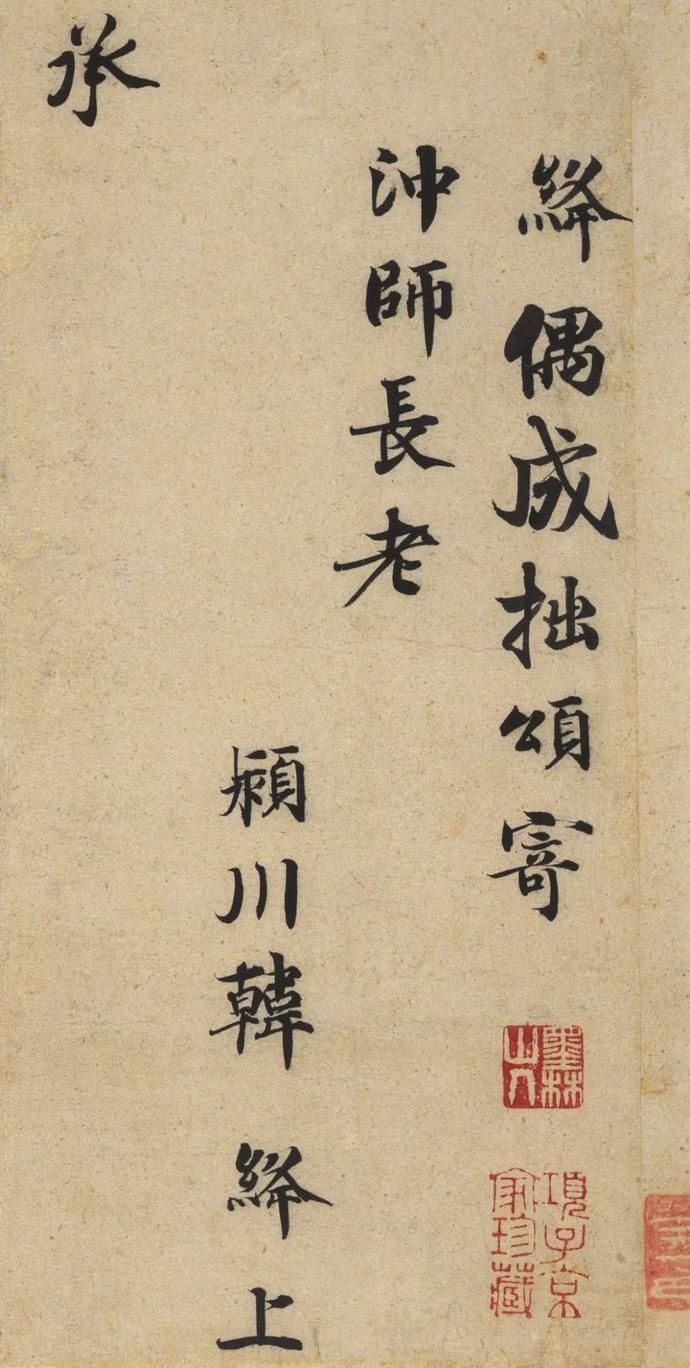 絳偶成拙頌寄
沖師長老
潁川韓絳上
承
墨林山人
項子京家珍藏